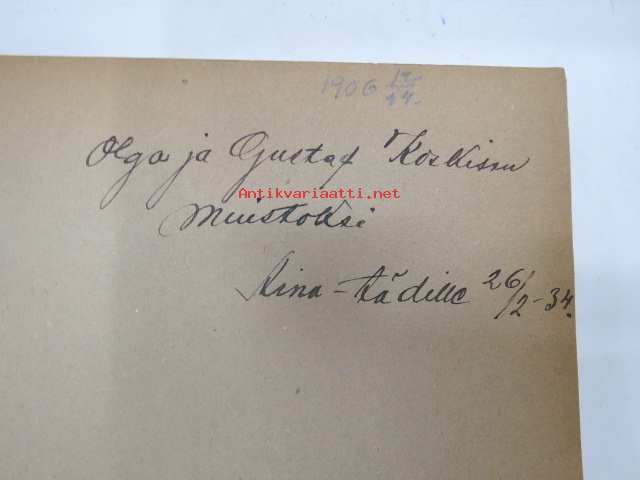 1906 12/24.
Olga ja Gustaf Koskisen
Antikvariaatti.net
Muistoksi
Aina-tädille 26/2-34.